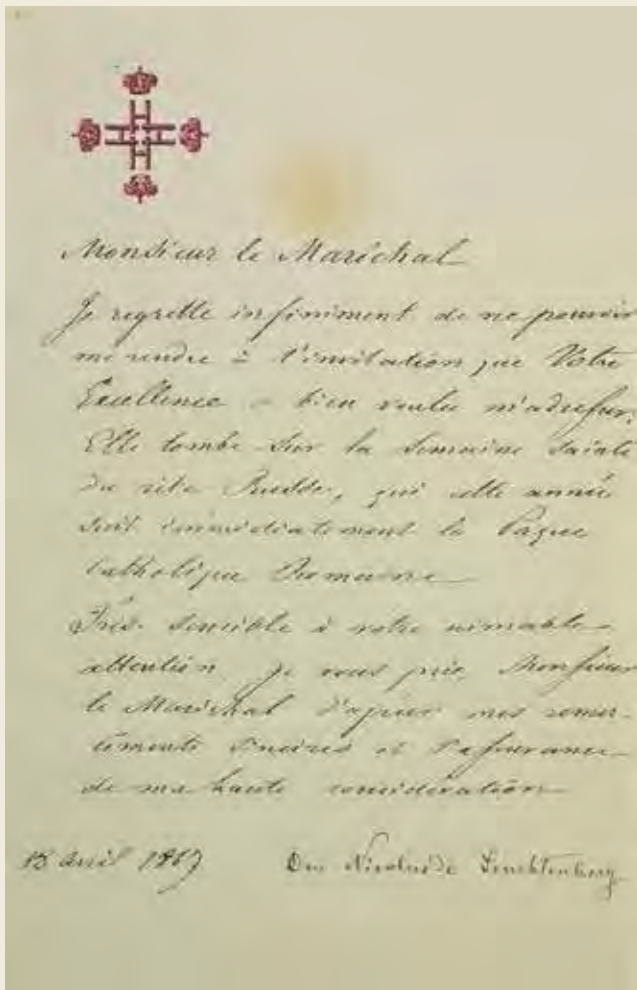 Monsieur le Maréchal
Je regrette infiniment de ne pouvoir
me rendre à l'invitation que Votre
Excellence a bien voulu m'adresser.
Elle tombe sur la Semaine Sainte
du rite Russe, qui cette année
suit immédiatement la Pâque
Catholique Romaine
Très sensible à votre aimable
attention je vous prie, Monsieur
le Maréchal d'agréer mes remer-
ciments sincères et l'assurance
de ma haute considération
avril 1867 Duc Nicolas de Leuchtenberg